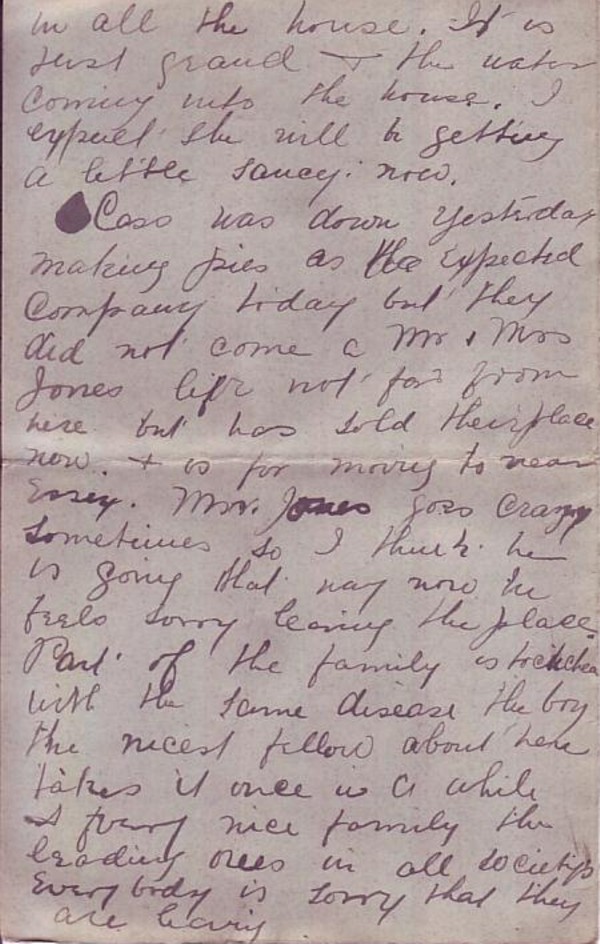 in all the house. It is
just grand + the water
coming into the house. I
expect she will be getting
a little saucy now.
Cass was down yesterday
making pies as she expected
Company today but they
did not come a Mr & Mrs
Jones life not far from
here but has sold their place
now. + is for moving to near
Essex. Mr. Jones goes crazy
sometimes so I think he
is going that way now he
feels sorry leaving the place.
Part of the family is touched
with the same disease the boy
the nicest fellow about here
takes it once in a while
A very nice family the
leading ones in all societys
Every body is sorry that they
are leaving